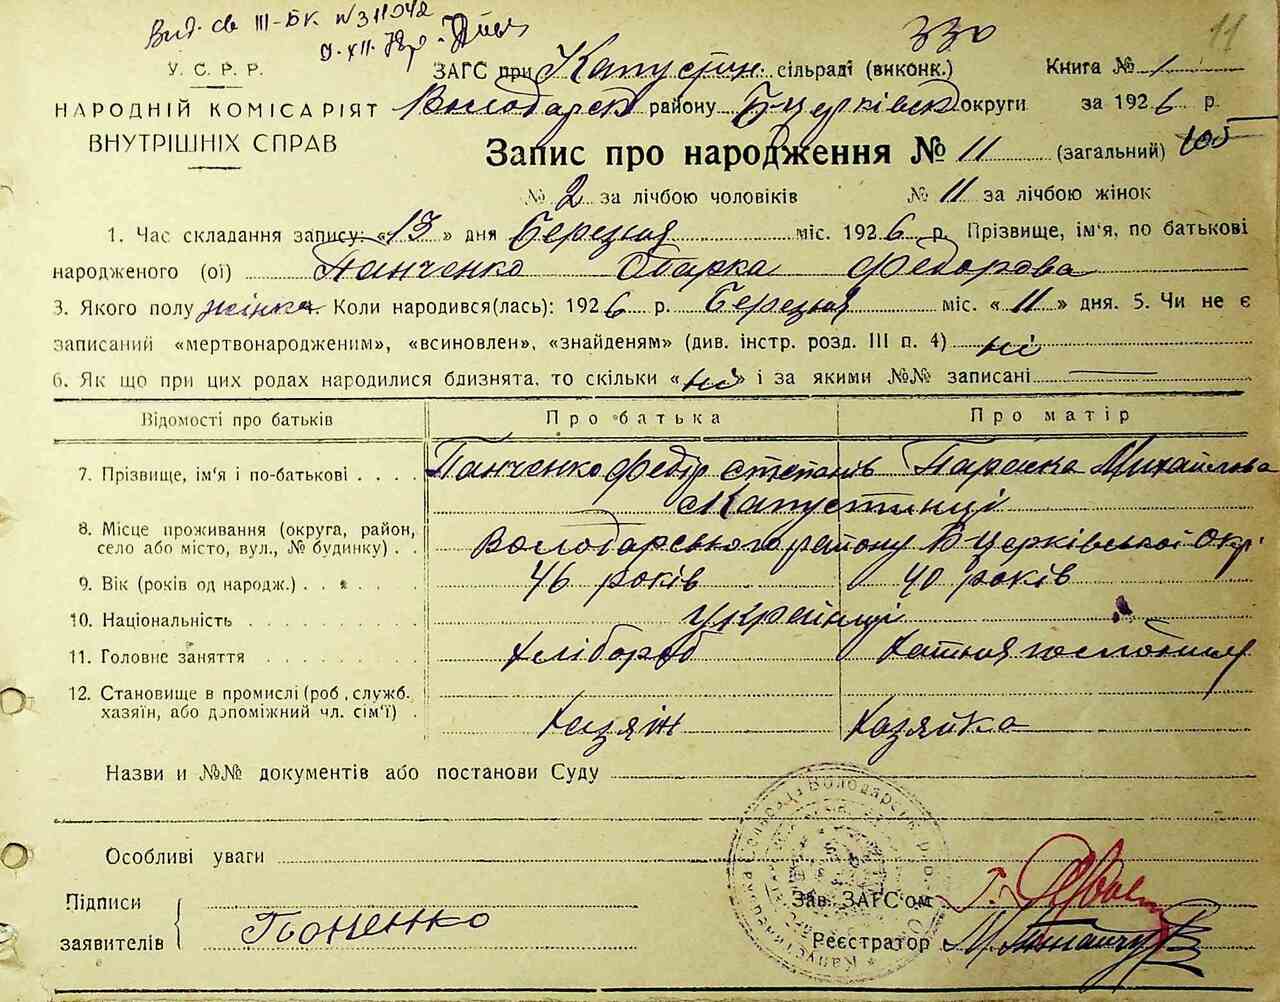 Вид. св III-БК № 311042
330
11
9. XII. 
У. С. Р. Р.
НАРОДНІЙ КОМІСАРІЯТ
ВНУТРІШНІХ СПРАВ
ЗАГС при Капустин. сільраді (виконк.) Книга № 1
Володарськ району Б церківськ округи за 1926 р.
Запис про народження № 11 (загальний) 105
№ 2 за лічбою чоловіків № 11 за лічбою жінок
1. Час складання запису: «13» дня березня міс. 1926 р. Прізвище, ім'я, по батькові
народженого (ої) Панченко Одарка Федорова
3. Якого полу жінка. Коли народився(лась): 1926 р. березня міс. «11» дня. 5. Чи не є
записаний «мертвонародженим», «всиновлен», «знайденям» (див. інстр. розд. III п. 4) ні
6. Як що при цих родах народилися близнята, то скільки «ні» і за якими №№ записані
Відомості про батьків Про батька Про матір
7. Прізвище, ім'я і по-батькові Панченко Федір Степанів Параска Михайлова
8. Місце проживання (округа, район, село або місто, вул., № будинку) Капустинці
Володарського району Б Церківської Окр
9. Вік (років од народж.) 46 років 40 років
10. Національність Українці
11. Головне заняття Хлібороб Хатня господиня
12. Становище в промислі (роб., служб. хазяїн, або допоміжний чл. сім'ї) Хазяїн Хазяйка
Назви и №№ документів або постанови Суду
Особливі уваги
Підписи
заявителів
Зав. ЗАГС'ом
Реєстратор